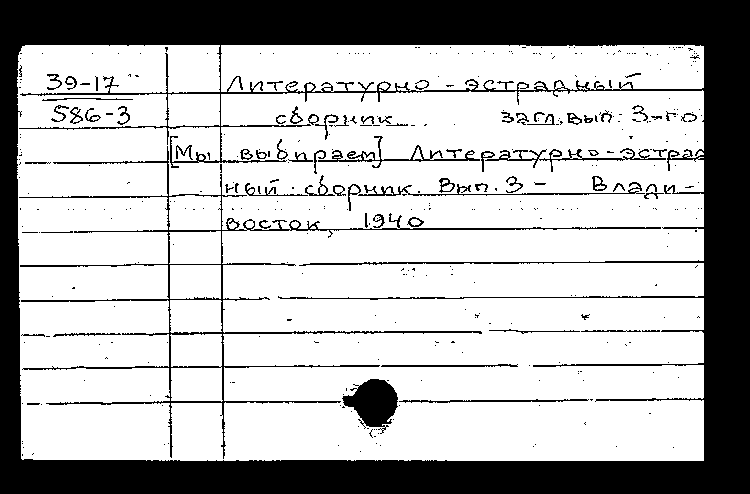 39-17
586-3
Литературно-эстрадный
сборник загл. вып. 3-го.
[Мы выбираем] Литературно-эстрад
ный сборник. Вып. 3 - Влади-
восток, 1940